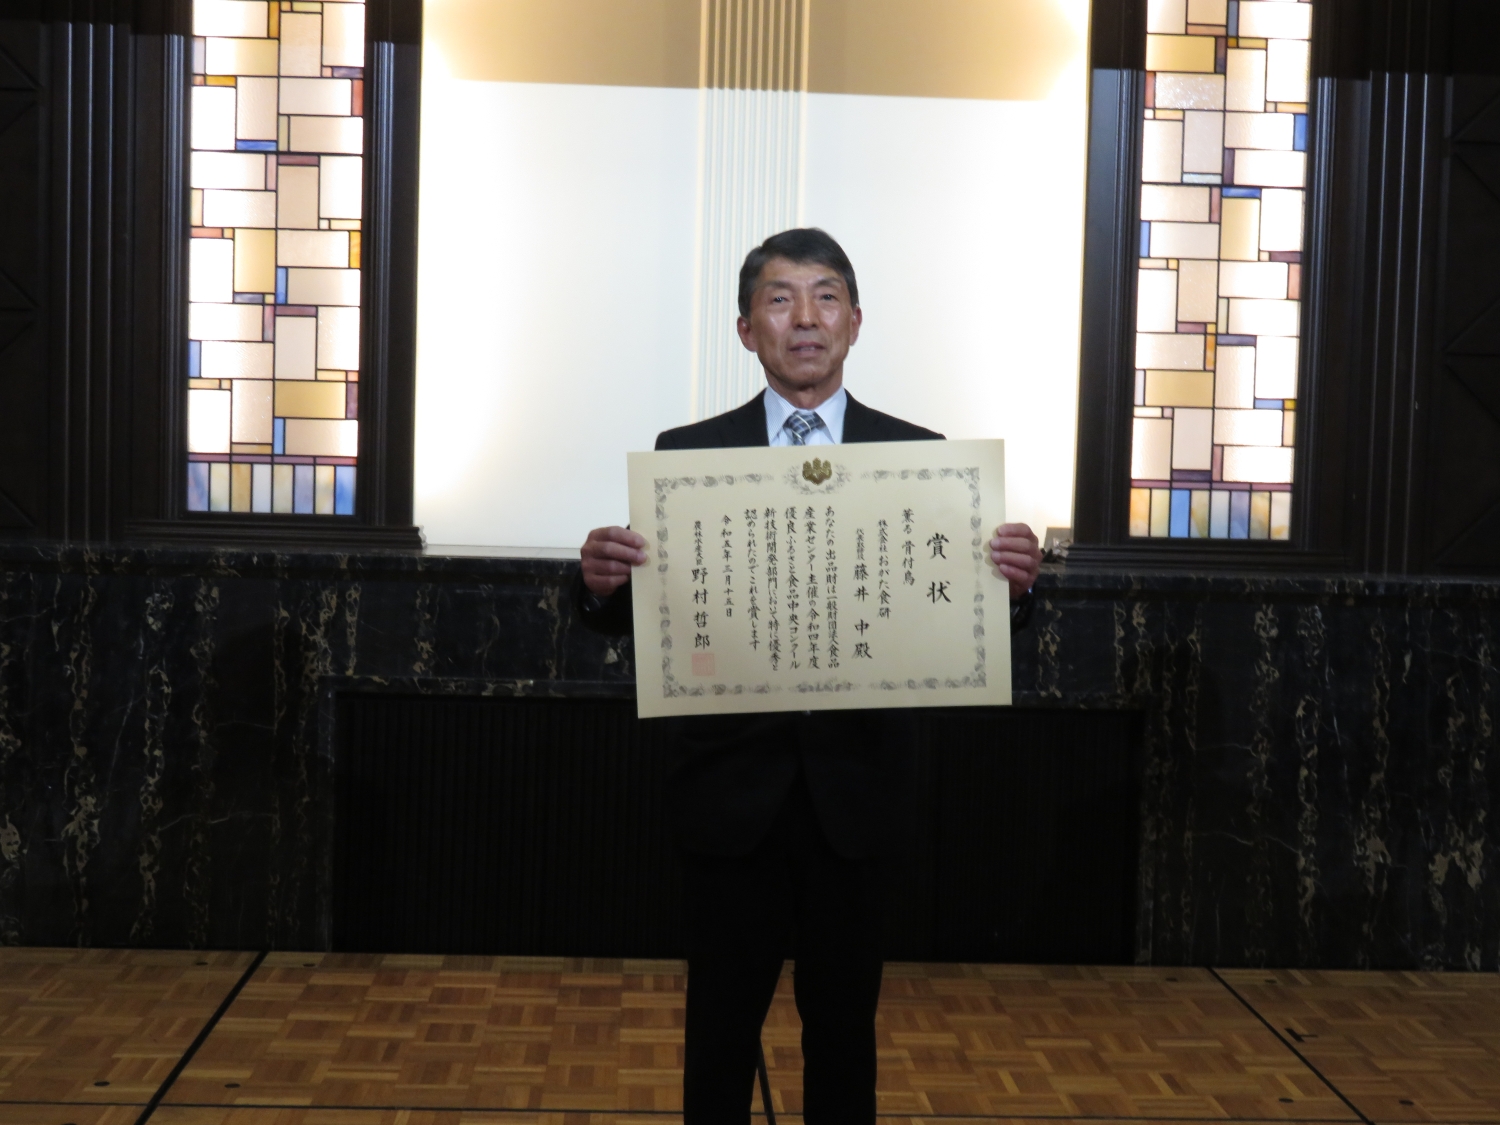 賞状
薫る 骨付鳥
株式会社おがた食研
代表取締役 藤井 中殿
あなたの出品財は一般財団法人食品
産業センター主催の令和四年度
優良ふるさと食品中央コンクール
新技術開発部門において特に優秀と
認められたのでこれを賞します
令和五年三月十五日
農林水産大臣 野村哲郎